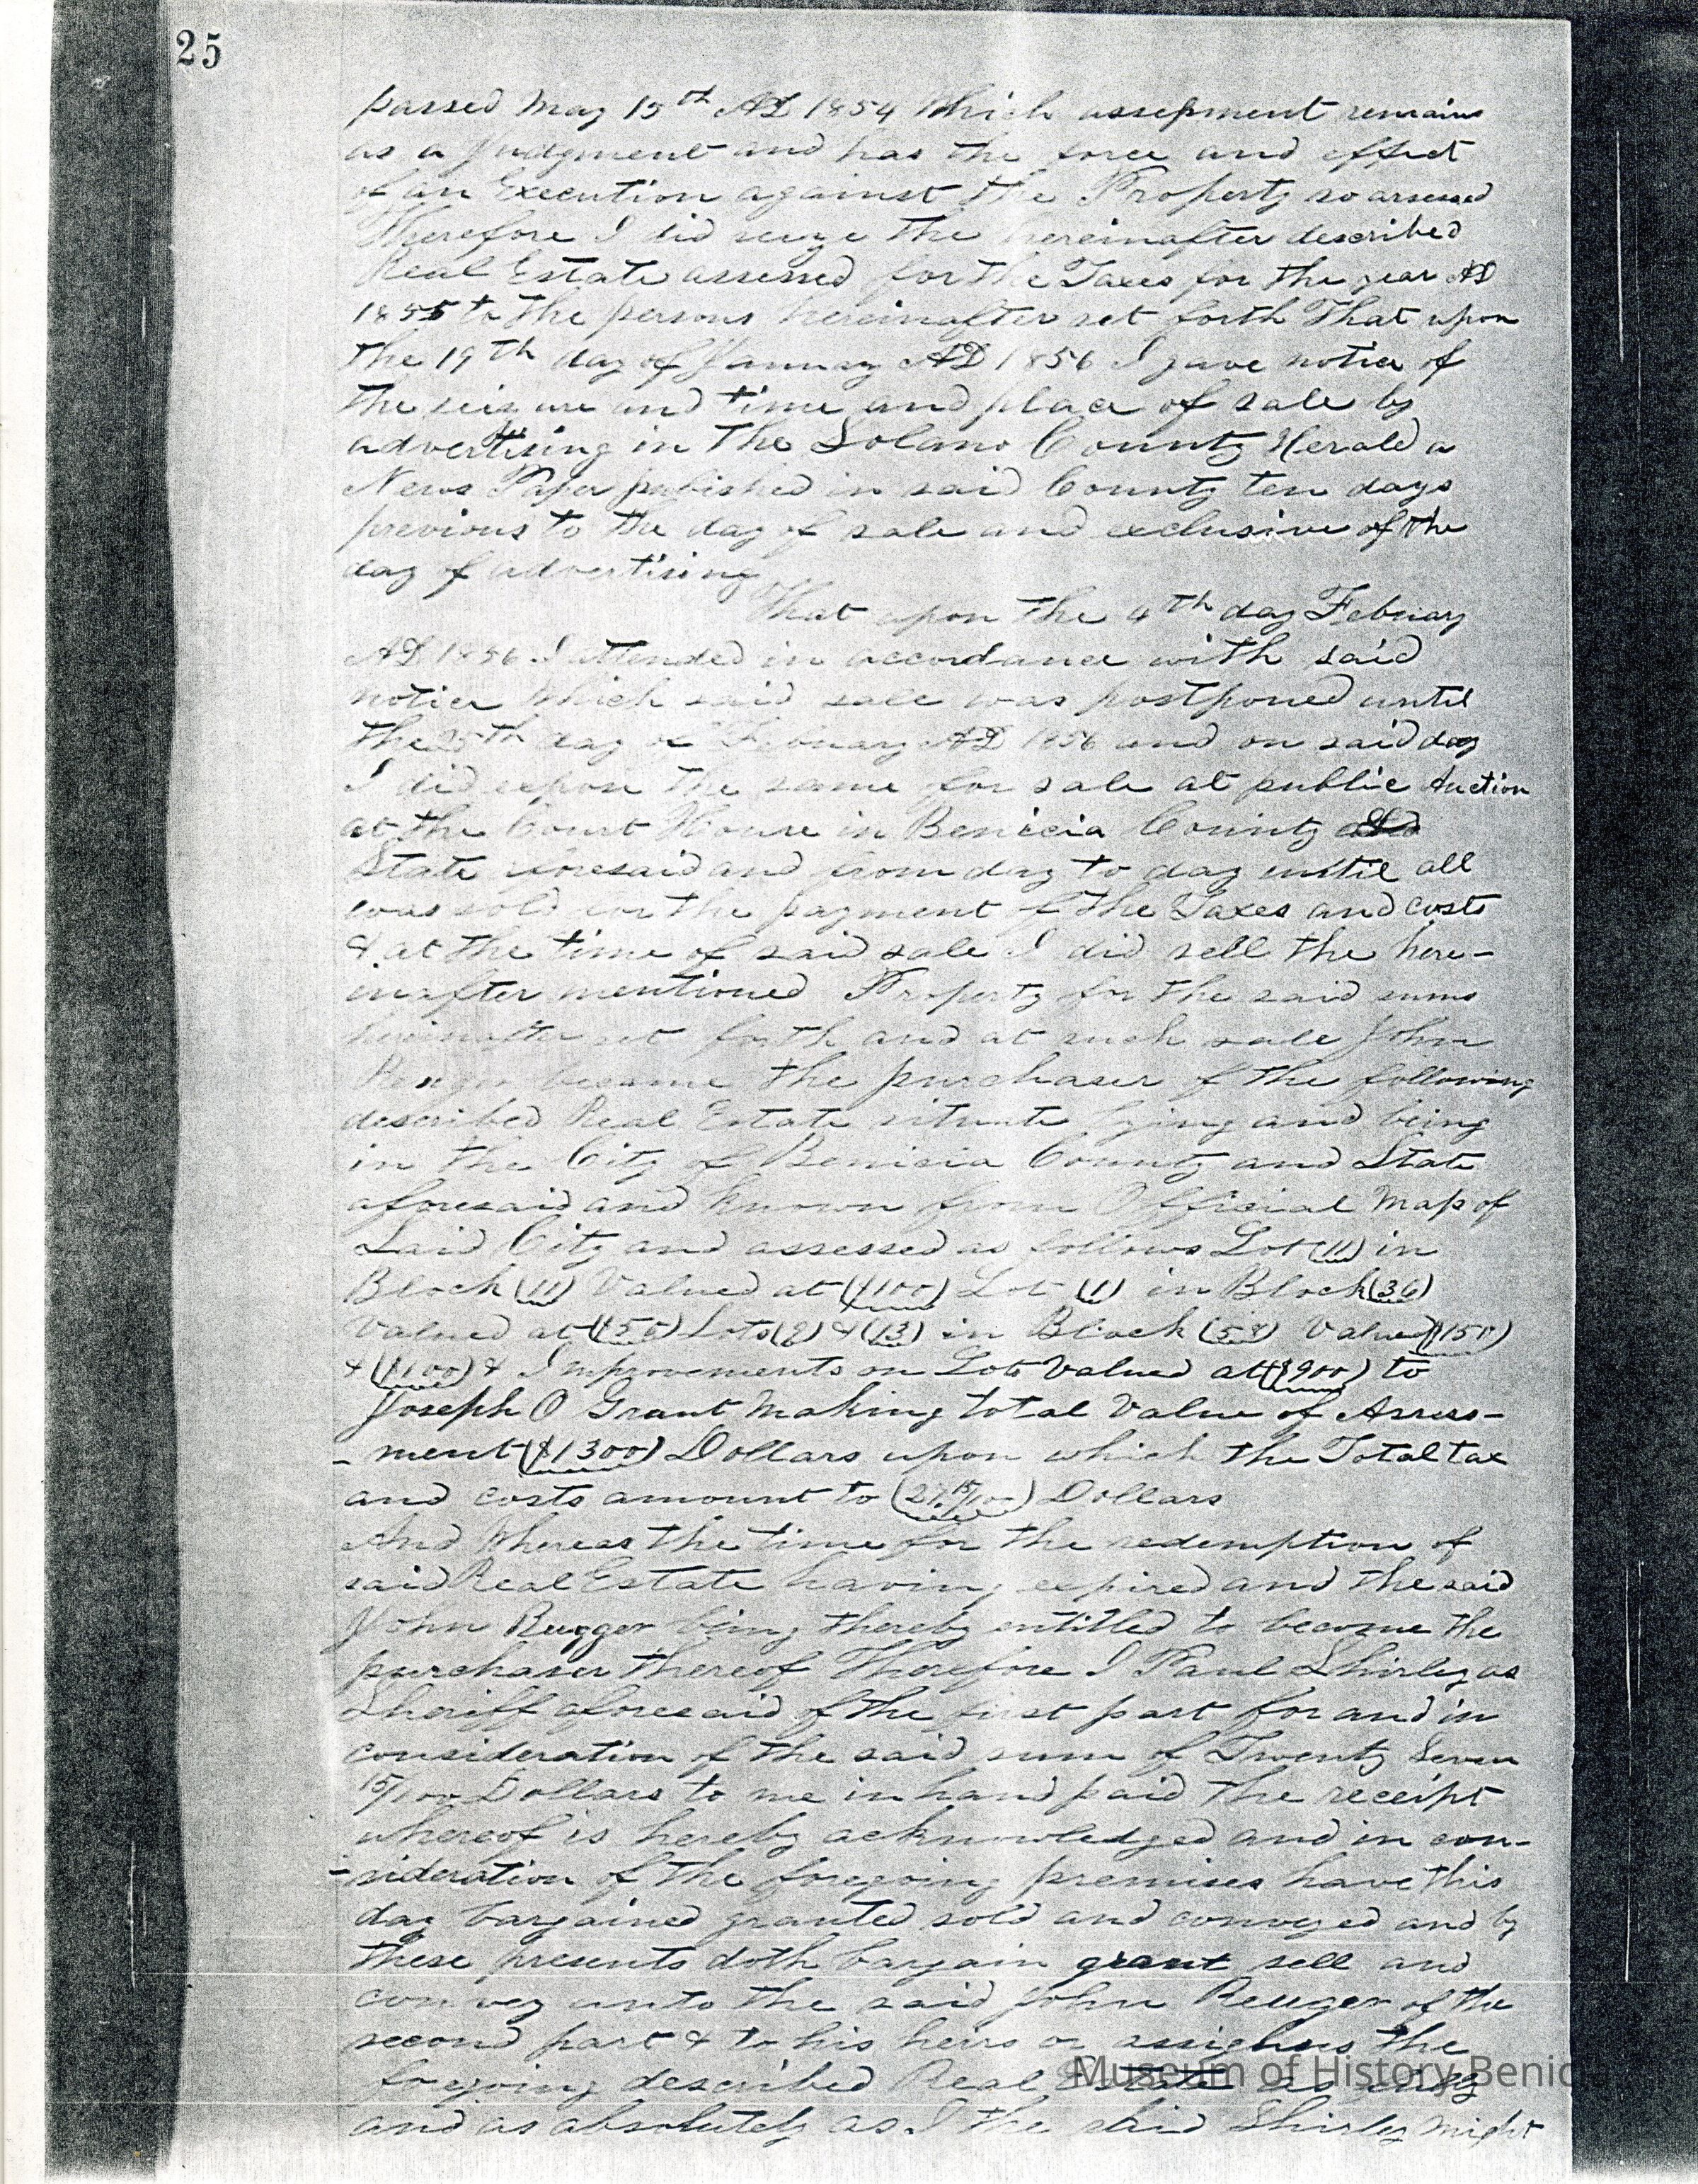 25
passed May 15th AD 1854 Which assessment remains
as a Judgment and has the force and effect
of an Execution against the Property so assessed
Therefore I did seize the hereinafter described
Real Estate assessed for the Taxes for the year AD
1855 to the persons hereinafter set forth That upon
the 19th day of January AD 1856 I gave notice of
the seizure and time and place of sale by
advertising in the Solano County Herald a
News Paper published in said County ten days
previous to the day of sale and exclusive of the
day of advertising
That upon the 4th day Febuary
AD 1856 I attended in accordance with said
notice Which said sale was postponed until
the 25th day of Febuary AD 1856 and on said day
I did expose the same for sale at public Auction
at the Court House in Benicia County and
State aforesaid and from day to day until all
was sold for the payment of the Taxes and costs
& at the time of said sale I did sell the here-
inafter mentioned Property for the said sums
hereinafter set forth and at such sale John
became the purchaser of the following
described Real Estate situate lying and being
in the City of Benicia County and State
aforesaid and known from Official Map of
Said City and assessed as follows Lot (11) in
Block (11) Valued at ($100) Lot (1) in Block (36)
Valued at ($50) Lots (2) & (13) in Block (58) Valued ($150)
& ($100) & Improvements on Lot Valued at ($900) to
Joseph O Grant Making total Value of Assess-
-ment ($1300) Dollars upon which the Total tax
and costs amount to (27 15/100) Dollars
And Whereas the time for the redemption of
said Real Estate having expired and the said
John Rugger being thereby entitled to become the
purchaser thereof Therefore I Paul Shirley as
Sheriff aforesaid of the first part for and in
consideration of the said sum of Twenty Seven
15/100 Dollars to me in hand paid the receipt
whereof is hereby acknowledged and in con-
-sideration of the foregoing premises have this
day bargained granted sold and conveyed and by
these presents doth bargain grant sell and
convey unto the said John Reuger of the
second part & to his heirs or assighns the
foregoing described Real Estate as
and as absolutely as I the said Shirley might
Museum of History Benic